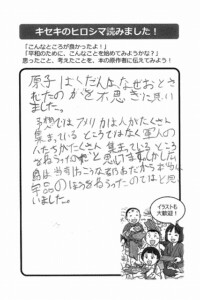 キセキのヒロシマ読みました！
「こんなところが良かったよ！」
「平和のために、こんなことを始めてみようかな？」
思ったこと、考えたことを、本の原作者に伝えてみよう！
原子ばくだんはなぜおとさ
れたのかを不思ぎに思い
ました。
予想ではアメリカは人がたくさん
集まっているところではなく軍人の
人たちがたくさん集まっているところ
をねらって
と思いますしかし広
島は
だから本当は
宇品のほうをねらったのではと思
いました。
イラストも
大歓迎！